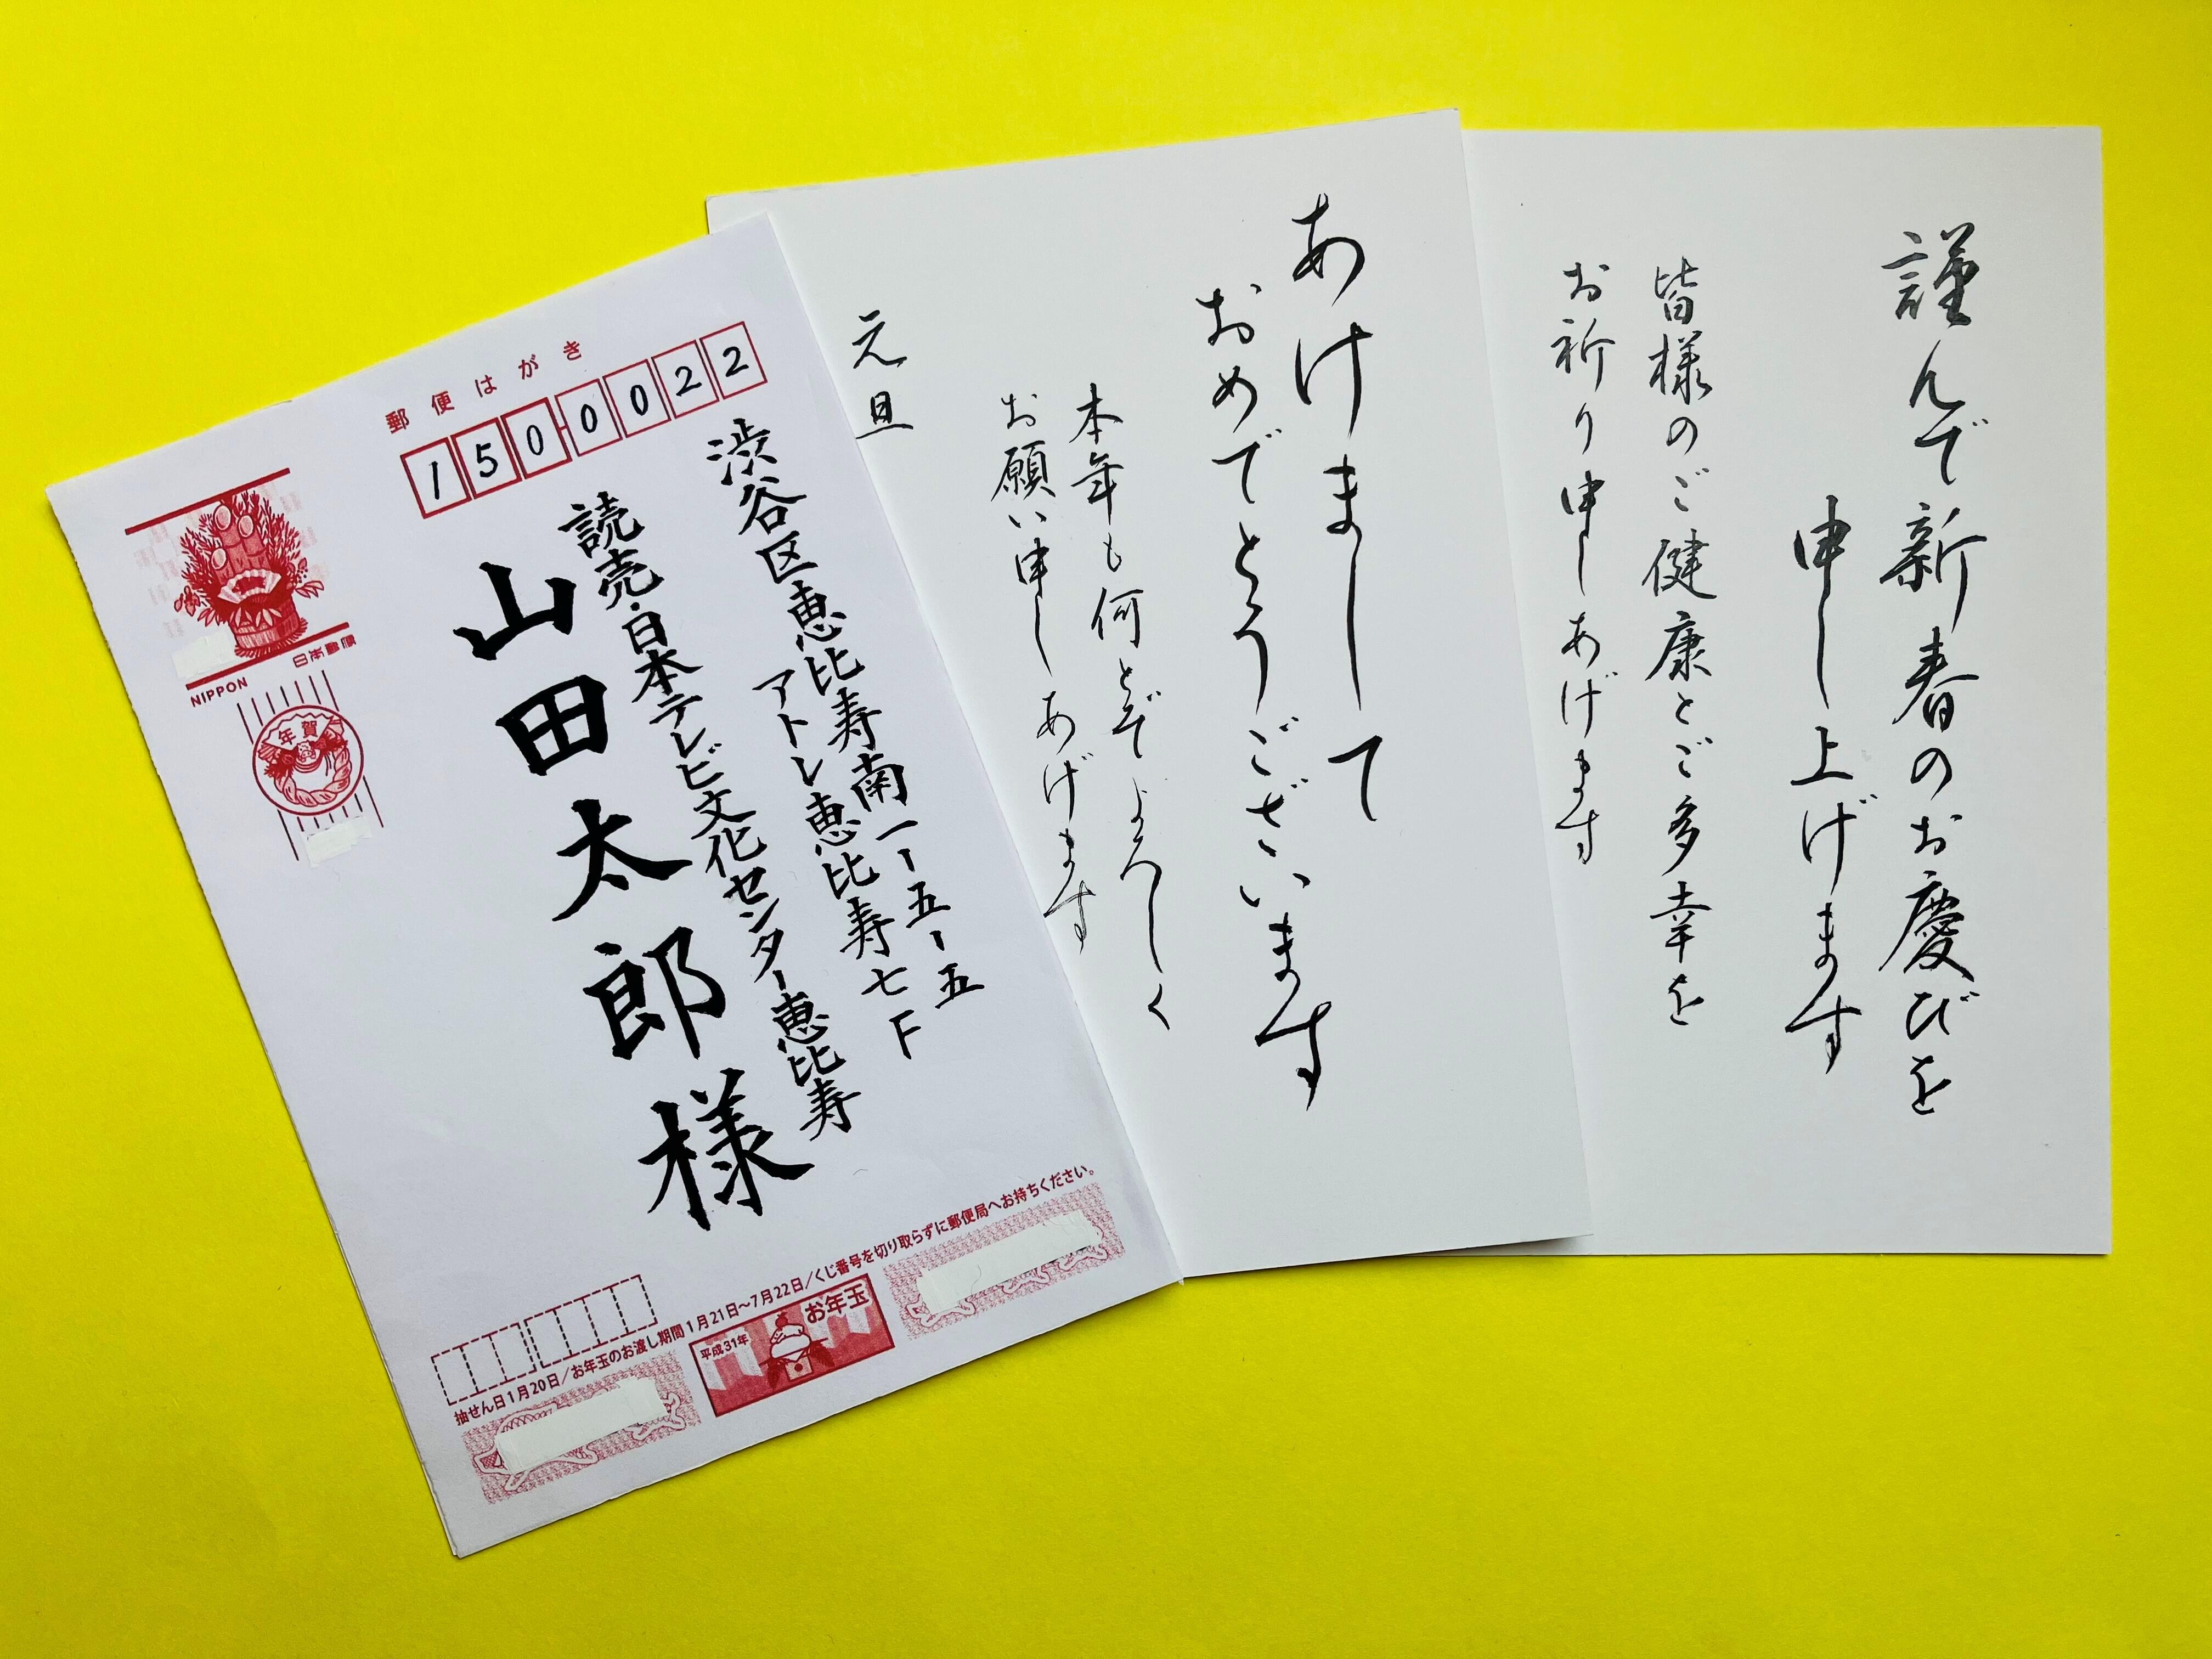 郵便はがき
150-0022
渋谷区恵比寿南一ー五ー五
アトレ恵比寿七F
読売・日本テレビ文化センター恵比寿
山田太郎様
日本郵便
NIPPON
年賀
抽せん日1月20日/お年玉のお渡し期間1月21日~7月22日/くじ番号を切り取らずに郵便局へお持ちください。
平成31年
お年玉
あけまして
おめでとうございます
本年も何とぞよろしく
お願い申しあげます
元旦
謹んで新春のお慶びを
申し上げます
皆様のご健康とご多幸を
お祈り申しあげます